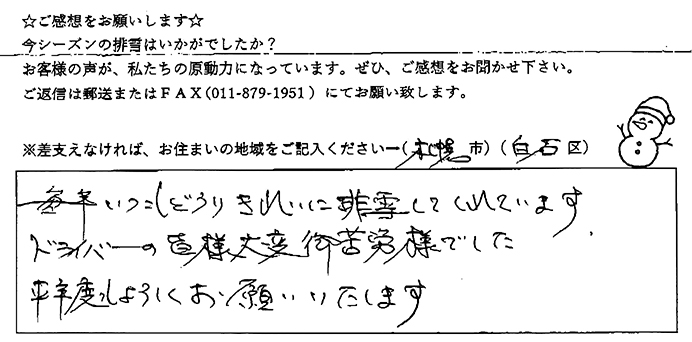 ☆ご感想をお願いします☆
今シーズンの排雪はいかがでしたか？
お客様の声が、私たちの原動力になっています。ぜひ、ご感想をお聞かせ下さい。
ご返信は郵送またはＦＡＸ(011-879-1951）にてお願い致します。
※差支えなければ、お住まいの地域をご記入ください→(札幌市)(白石区)
毎年いつも どうり きれいに排雪してくれています
ドライバーの皆様大変御苦労様でした
来年度もよろしくお願いいたします